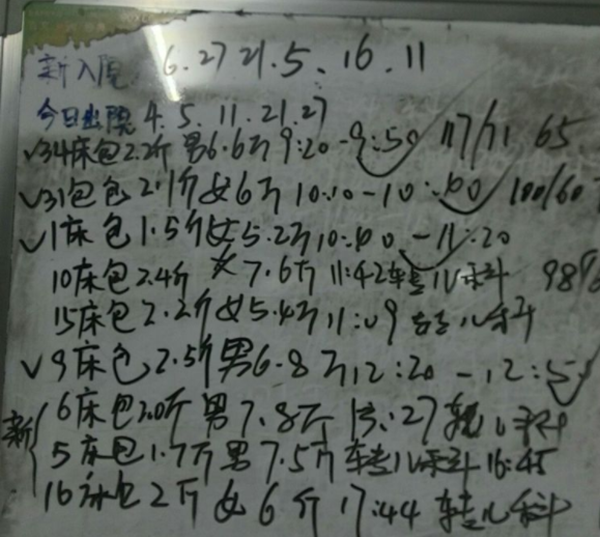 新入院 6.27 21.5、16.11
今日出院 4.5.11.21.27
√34床包2.2斤 男6.6斤 9:20-9:50 117/71 65
√31包包2.1斤女6斤10:10-10:40 100/60
√1床包1.5斤女5.2斤10:40-11:20
10床包2.4斤 女7.6斤 11:42转儿科 98%
15床包2.2斤女5.4斤11:09转儿科
√9床包2.5斤男6.8斤12:20-12:55
新
6床包3.0斤男7.8斤 13:27转儿科
5床包1.7斤男7.5斤转儿科16:45
16床包2斤女6斤 17:44转儿科